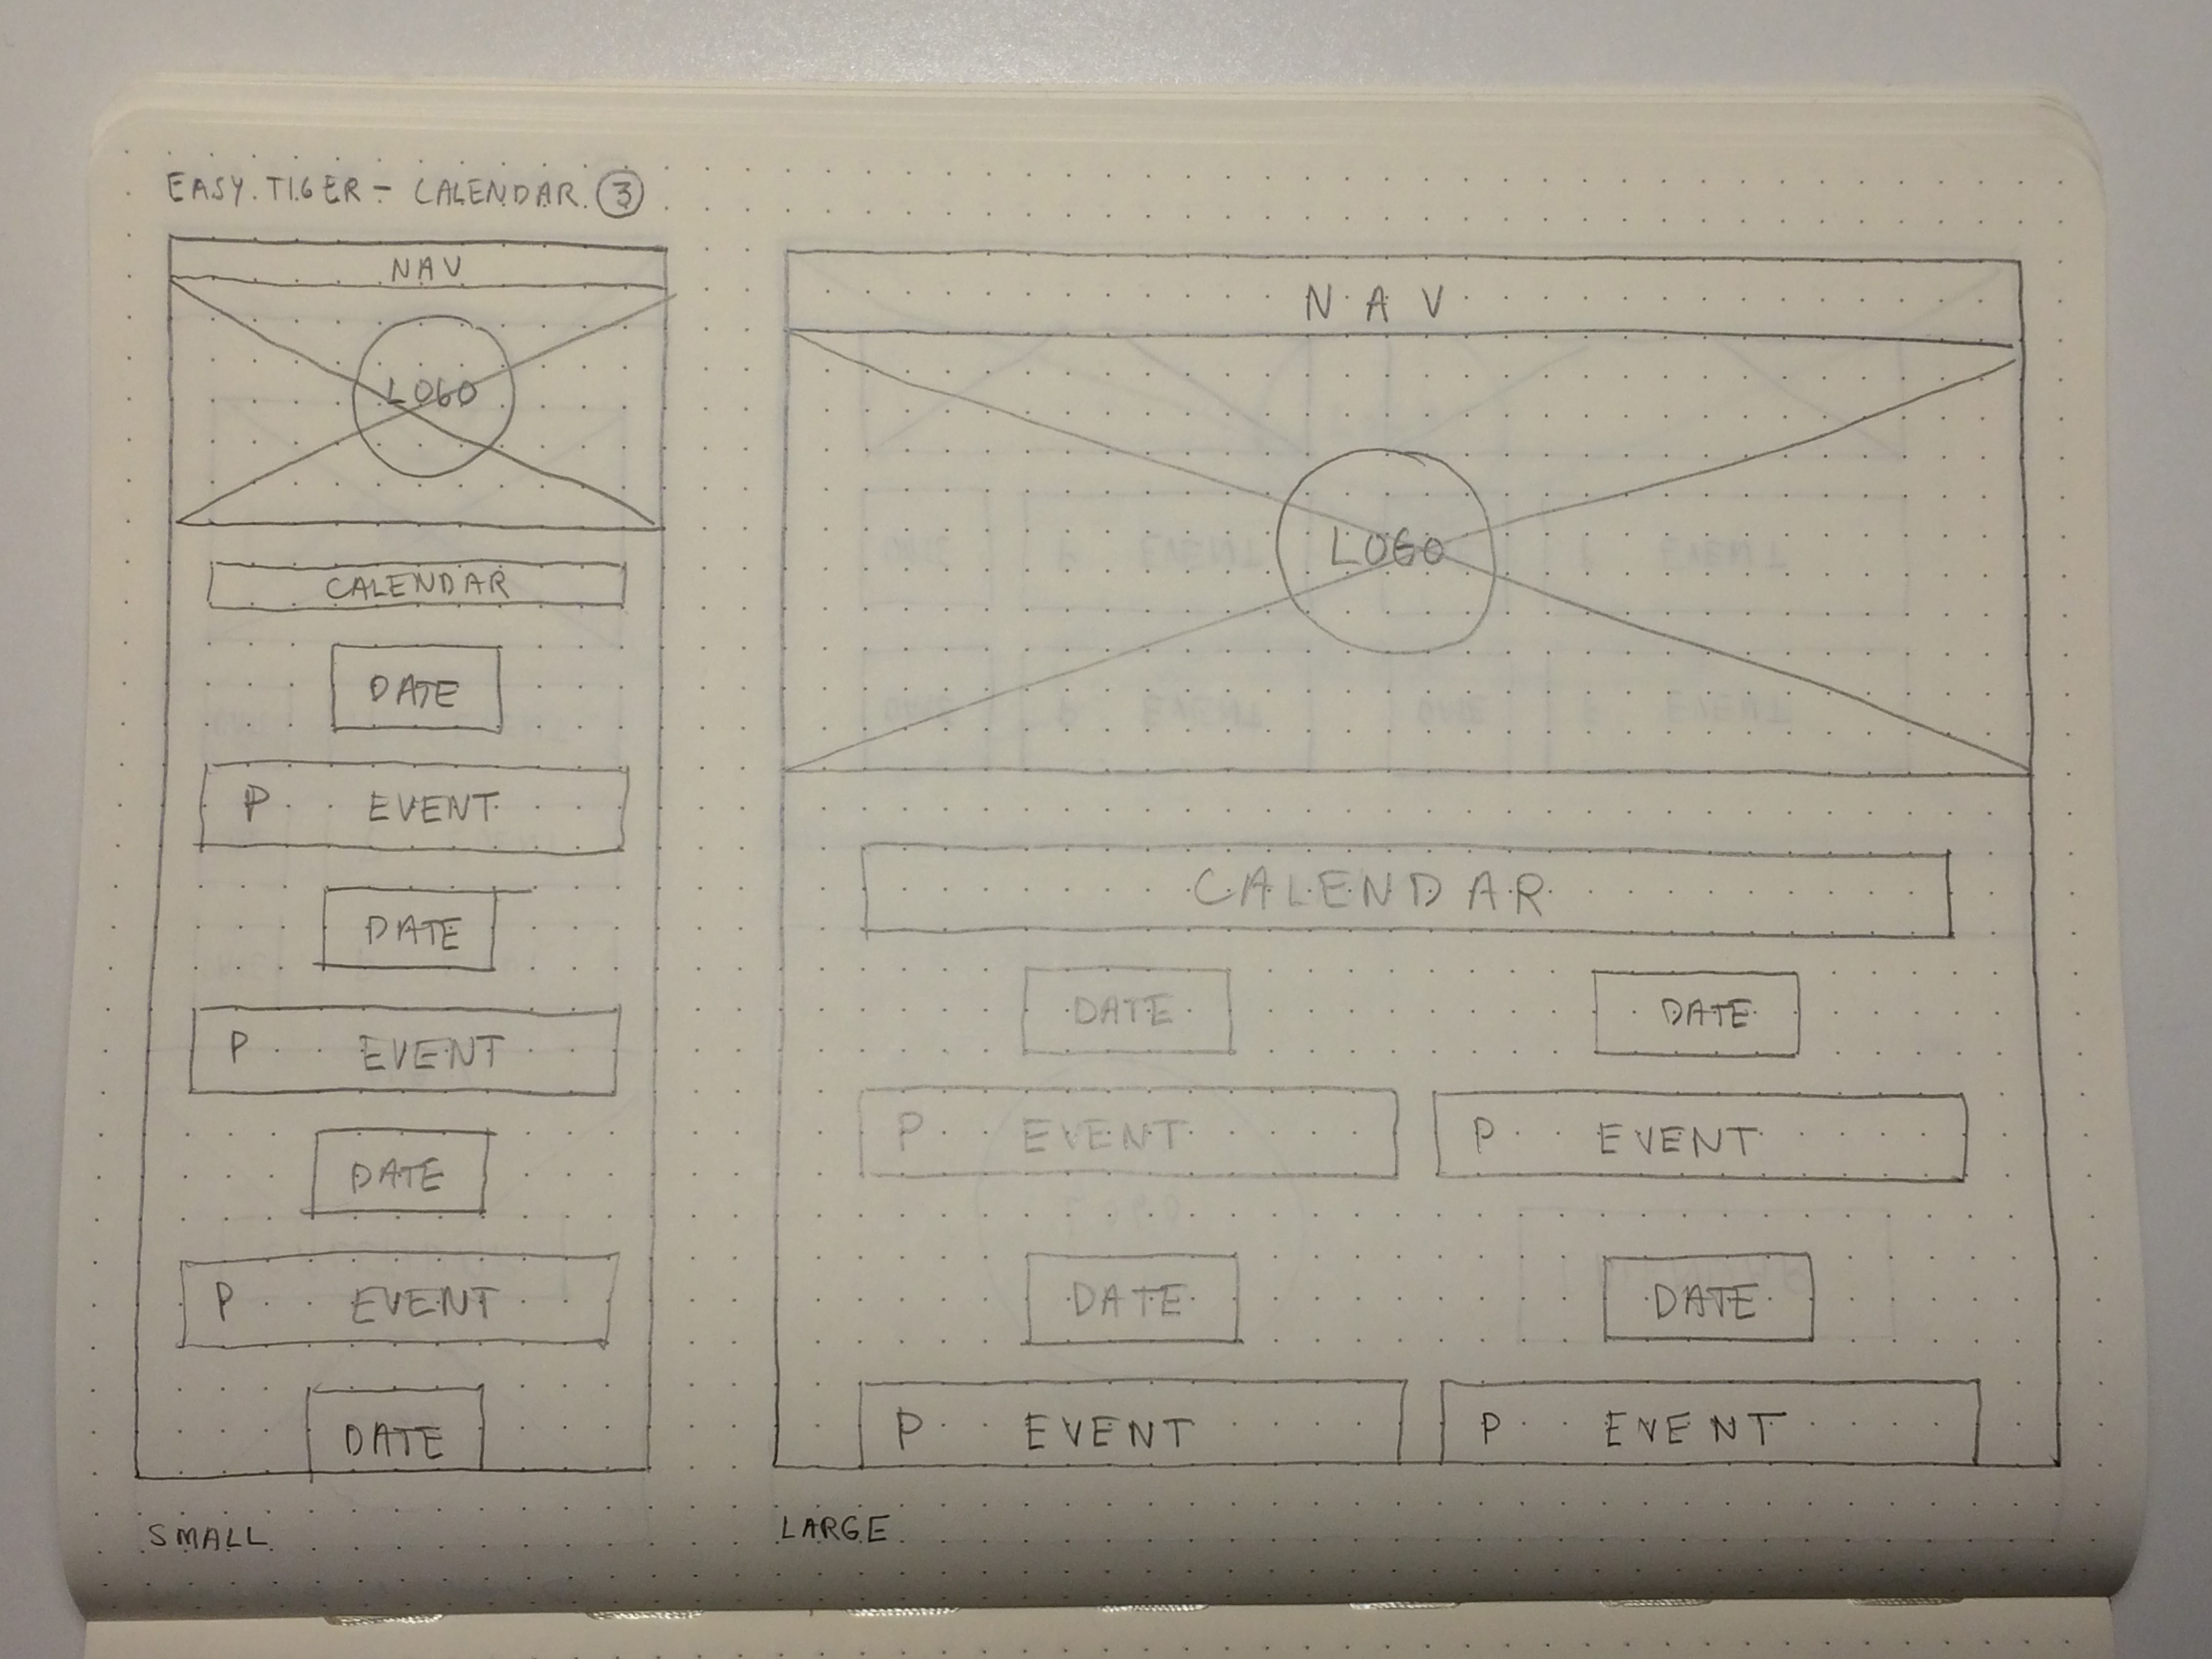 EASY TIGER - CALENDAR 3
NAV
LOGO
CALENDAR
DATE
P EVENT
DATE
P EVENT
DATE
P EVENT
DATE
SMALL
NAV
LOGO
CALENDAR
DATE DATE
P EVENT P EVENT
DATE DATE
P EVENT P EVENT
LARGE